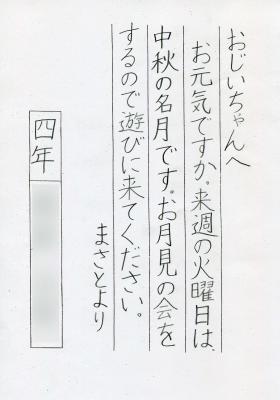 おじいちゃんへ
お元気ですか。来週の火曜日は、
中秋の名月です。お月見の会を
するので遊びに来てください。
まさとより
四年